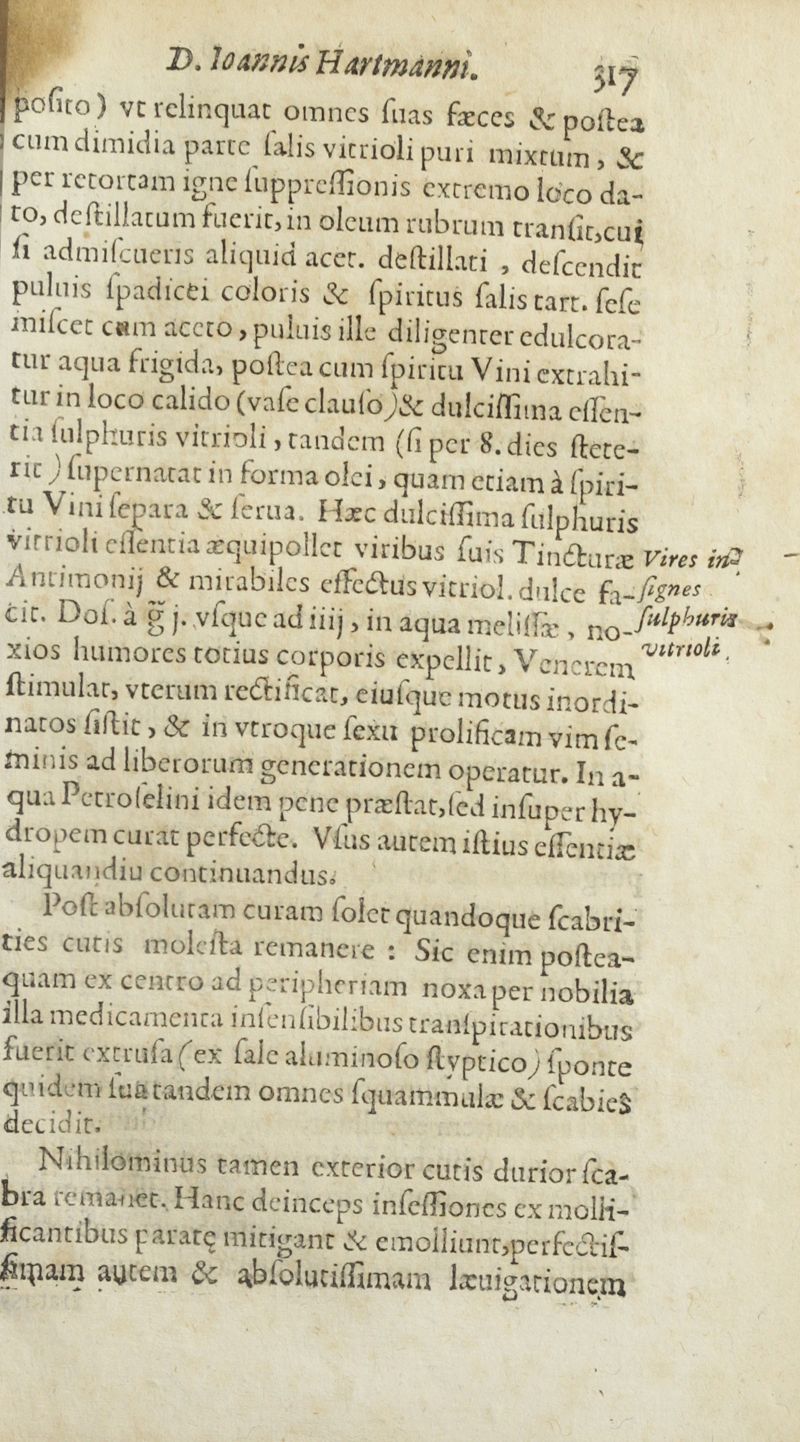 D. Ioannis Hartmanni. 317
posito) vt relinquat omnes suas fæces & postea
cum dimidia parte salis vitrioli puri mixtum, &
per retortam igne suppressionis extremo loco da-
to, destillatum fuerit, in oleum rubrum transit, cui
si admiscueris aliquid acet. destillati, descendit
puluis spadicei coloris & spiritus salis tart. sese
miscet cum aceto, puluis ille diligenter edulcora-
tur aqua frigida, postea cum spiritu Vini extrahi-
tur in loco calido (vase clauso) & dulcissima essen-
tia sulphuris vitrioli, tandem (si per 8. dies stete-
rit) supernatat in forma olei, quam etiam à spiri-
tu Vini separa & serua. Hæc dulcissima sulphuris
vitrioli essentia æquipollet viribus suis Tincturæ
Antimonij & mirabiles effectus vitriol. dulce fa-
cit. Dos. à g̃ j. vsque ad iiij, in aqua melissæ, no-
xios humores totius corporis expellit, Venerem
stimulat, vterum rectificat, eiusque motus inordi-
natos sistit, & in vtroque sexu prolificam vim se-
minis ad liberorum generationem operatur. In a-
qua Petroselini idem pene præstat, sed insuper hy-
dropem curat perfecte. Vsus autem istius essentiæ
aliquandiu continuandus.
Vires in-
signes
sulphuris
vitrioli.
Post absolutam curam solet quandoque scabri-
ties cutis molesta remanere : Sic enim postea-
quam ex centro ad peripheriam noxa per nobilia
illa medicamenta insensibilibus transpirationibus
fuerit extrusa (ex sale aluminoso styptico) sponte
quidem sua tandem omnes squammulæ & scabies
decidit.
Nihilominus tamen exterior cutis durior sca-
bra remanet. Hanc deinceps insessiones ex molli-
ficantibus paratę mitigant & emolliunt, perfectis-
simam autem & absolutissimam læuigationem